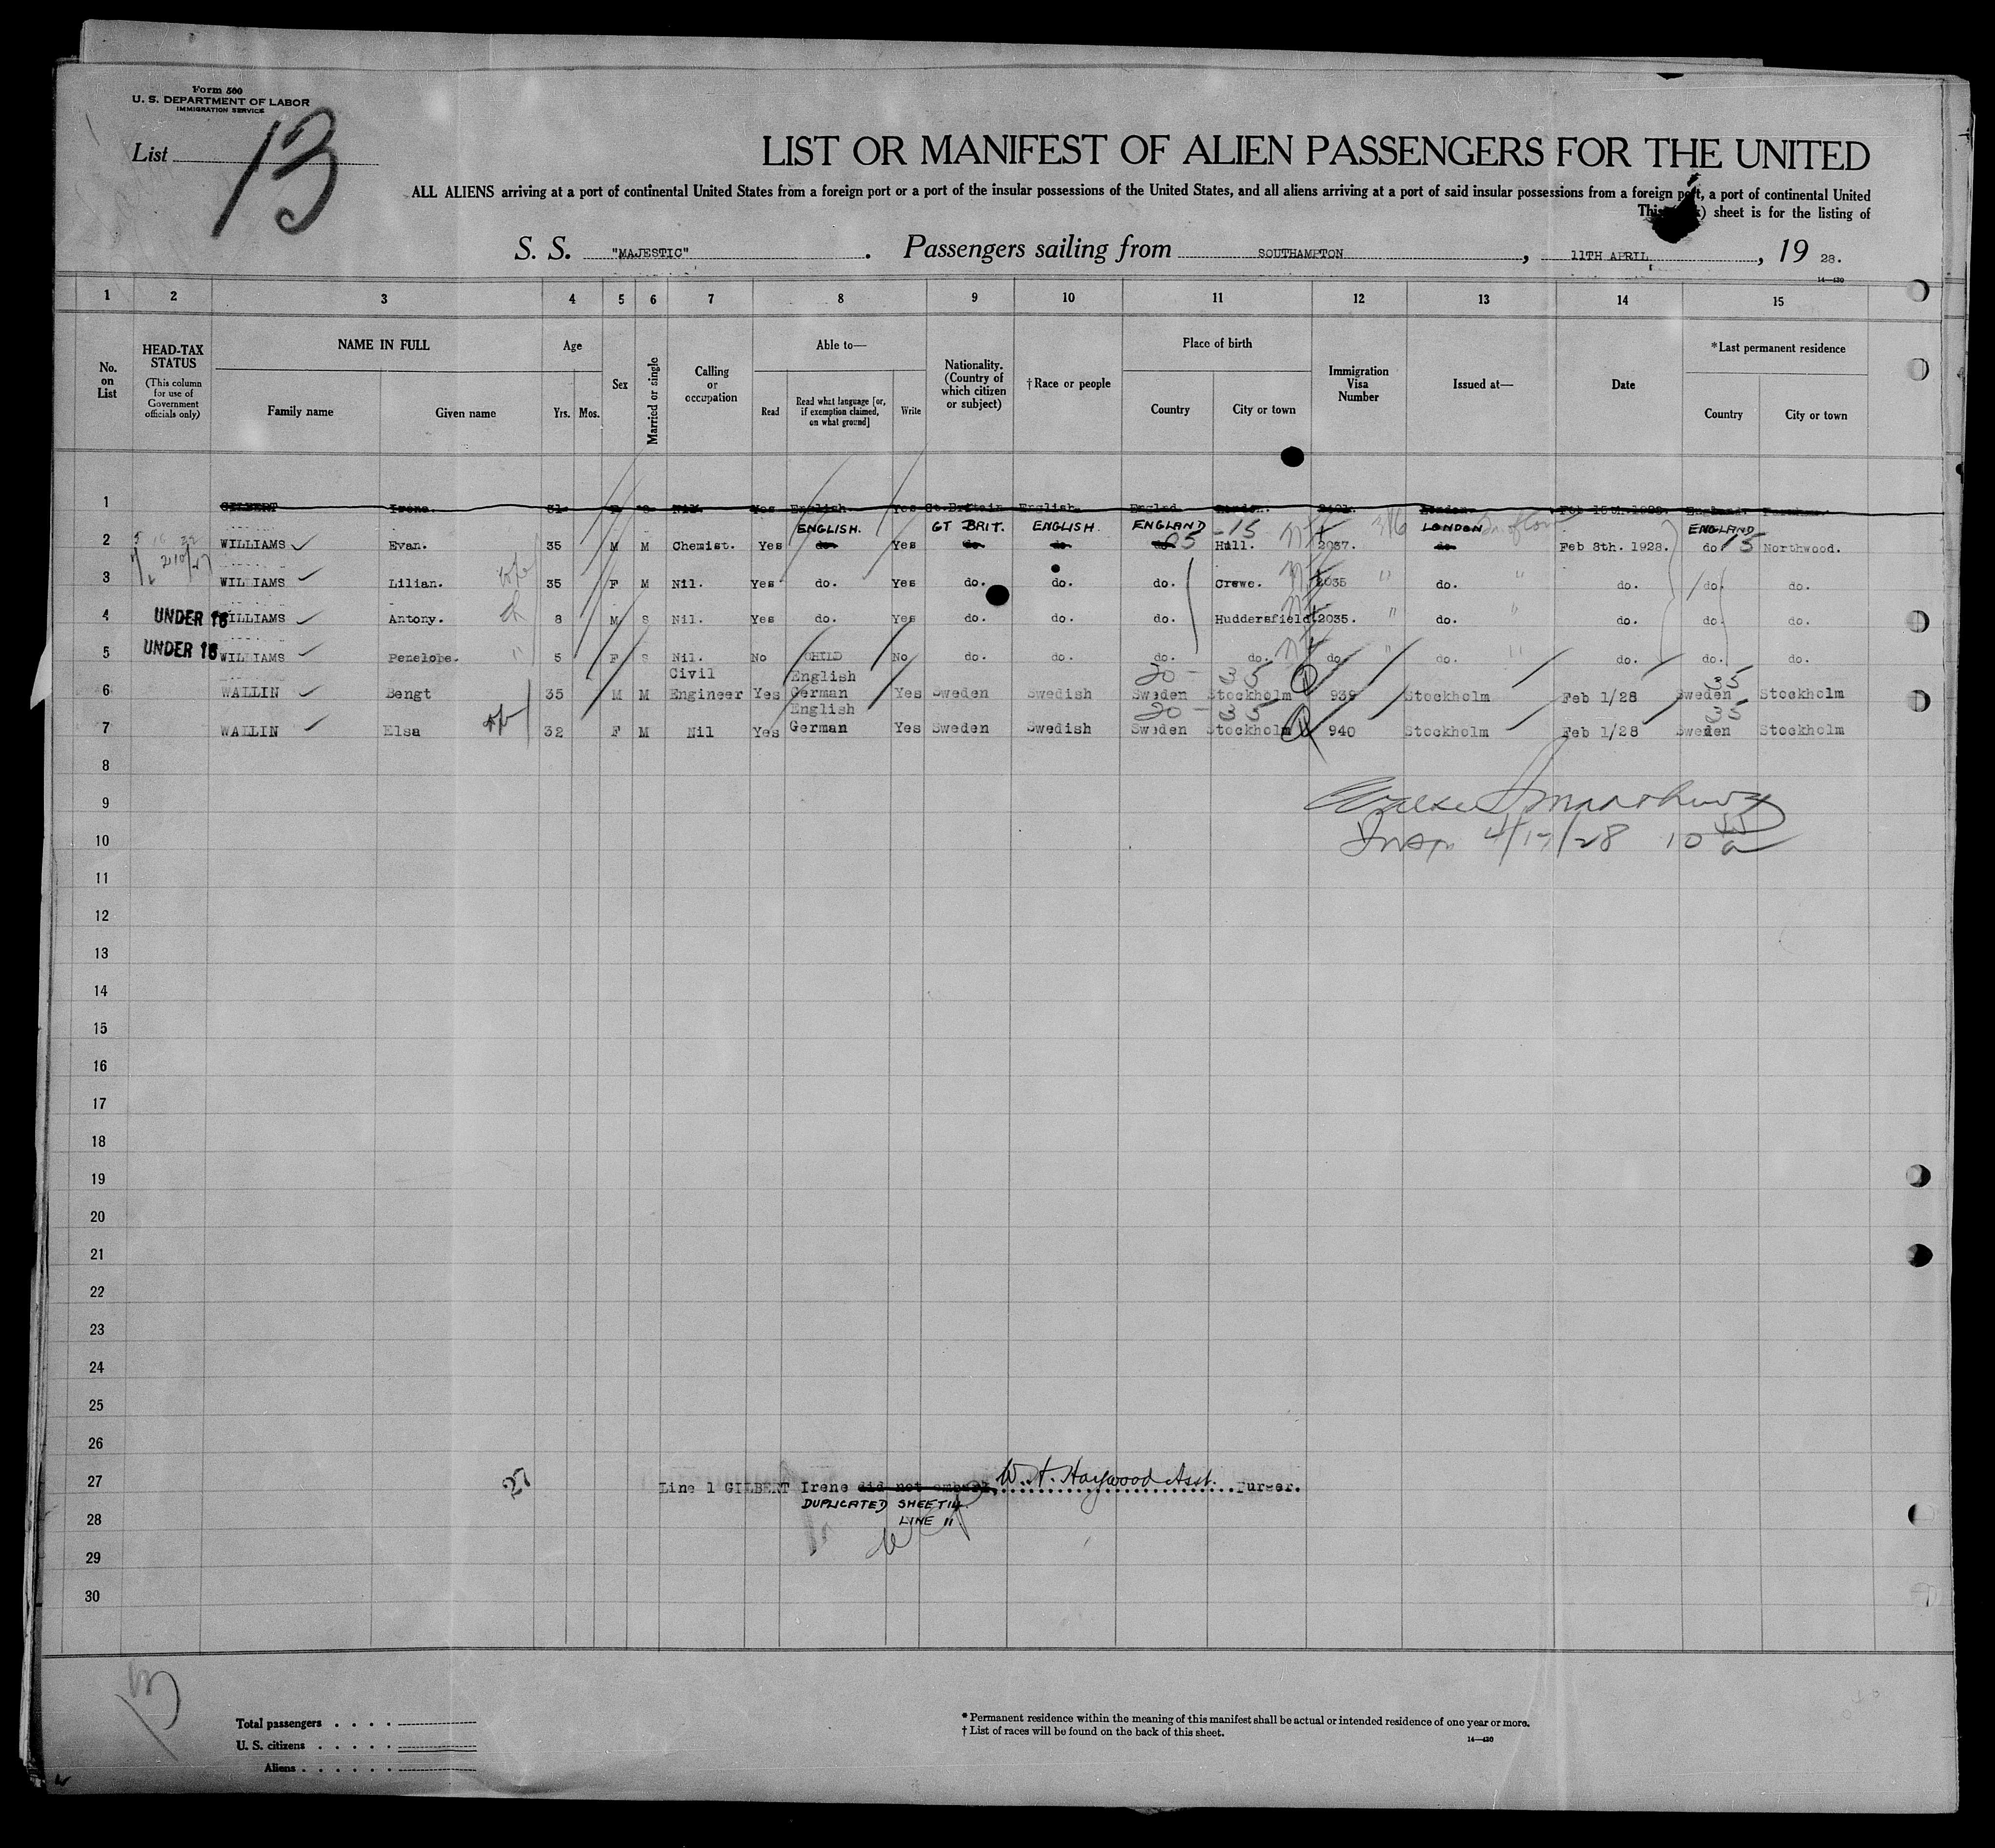 Form 500
U. S. DEPARTMENT OF LABOR
IMMIGRATION SERVICE
List 13
LIST OR MANIFEST OF ALIEN PASSENGERS FOR THE UNITED
ALL ALIENS arriving at a port of continental United States from a foreign port or a port of the insular possessions of the United States, and all aliens arriving at a port of said insular possessions from a foreign port, a port of continental United
This sheet is for the listing of
S. S. "MAJESTIC" . Passengers sailing from SOUTHAMPTON , 11TH APRIL , 19 28.
14—430
1 2 3 4 5 6 7 8 9 10 11 12 13 14 15
No. on List
HEAD-TAX STATUS
(This column for use of Government officials only)
NAME IN FULL
Family name Given name
Age
Yrs. Mos.
Sex
Married or single
Calling or occupation
Able to—
Read
Read what language [or, if exemption claimed, on what ground]
Write
Nationality. (Country of which citizen or subject)
†Race or people
Place of birth
Country City or town
Immigration Visa Number
Issued at—
Date
*Last permanent residence
Country City or town
1 GILBERT Irene. 31 F S Nil. Yes English Yes Gt.Britain English England London. London. Feb 15th.1928. England.
ENGLISH. GT BRIT. ENGLISH. ENGLAND -15 LONDON ENGLAND
2 WILLIAMS Evan. 35 M M Chemist. Yes do. Yes do. do. do. 05 Hull. 2037. do. Feb 8th. 1928. do. 15 Northwood.
3 WILLIAMS Lilian. 35 F M Nil. Yes do. Yes do. do. do. Crewe. 2035 " do. " do. do. do.
4 UNDER 16 WILLIAMS Antony. 8 M S Nil. Yes do. Yes do. do. do. Huddersfield 2035. " do. " do. do. do.
5 UNDER 16 WILLIAMS Penelope. " 5 F S Nil. No CHILD No do. do. do. do. do. " do. " do. do. do.
Civil English 20 - 35 35
6 WALLIN Bengt 35 M M Engineer Yes German Yes Sweden Swedish Sweden Stockholm 939 Stockholm Feb 1/28 Sweden Stockholm
English 20 - 35 35
7 WALLIN Elsa 32 F M Nil Yes German Yes Sweden Swedish Sweden Stockholm 940 Stockholm Feb 1/28 Sweden Stockholm
8
9
Insp. 4/17/28 10
10
11
12
13
14
15
16
17
18
19
20
21
22
23
24
25
26
27 27 Line 1 GILBERT Irene did not embark W. H. Haywood Asst. Purser.
DUPLICATED SHEET 14
28 LINE 11
29
30
13
Total passengers
U. S. citizens
Aliens
* Permanent residence within the meaning of this manifest shall be actual or intended residence of one year or more.
† List of races will be found on the back of this sheet.
14—430